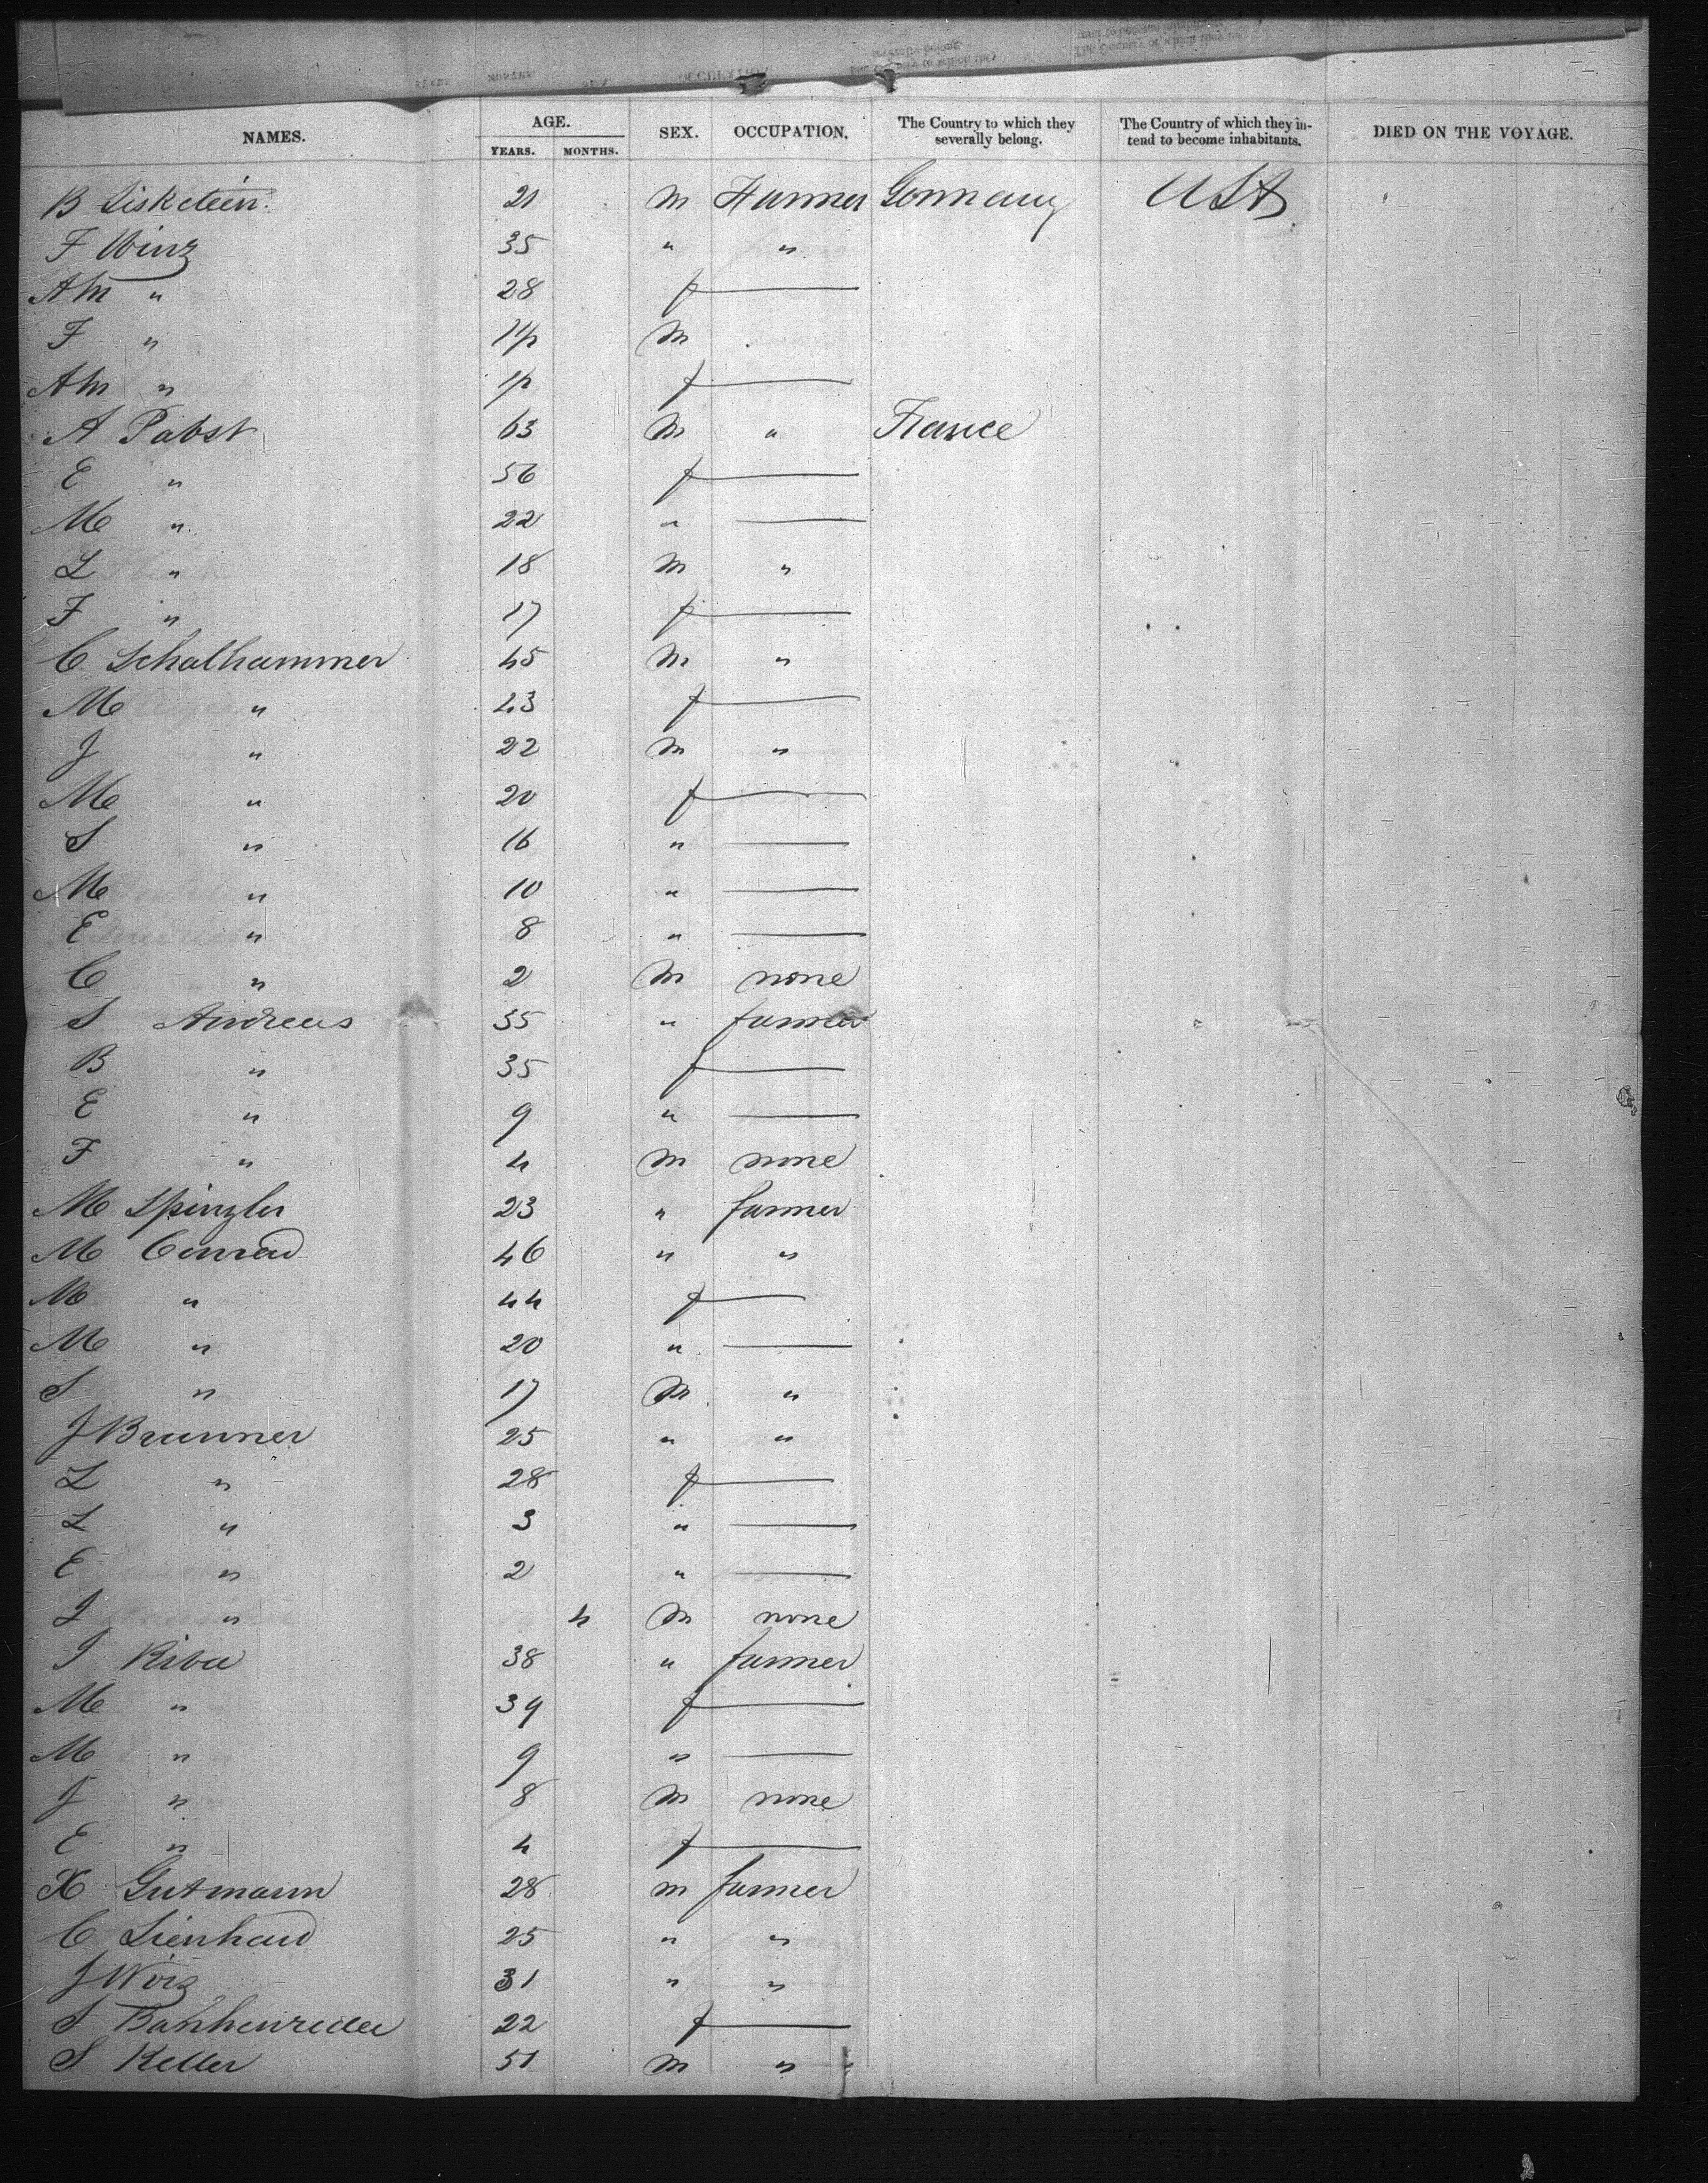 NAMES. AGE. YEARS. MONTHS. SEX. OCCUPATION. The Country to which they severally belong. The Country of which they intend to become inhabitants. DIED ON THE VOYAGE.
B 21 m Farmer Germany USA
F Winz 35 " "
AM " 28 f —
F " M
AM " f —
A Pabst 63 M " France
E " 56 f —
M " 22 " —
L " 18 M "
F " 17 f —
C Schalhammer 45 M "
M " 43 f —
J " 22 M "
M " 20 f —
S " 16 " —
M " 10 " —
E " 8 " —
C " 2 M none
S Andreas 35 " farmer
B " 35 f —
E " 9 " —
F " 4 M none
M Spinzler 23 " farmer
M Conrad 46 " "
M " 44 f —
M " 20 " —
S " 17 M "
J Brunner 25 " "
L " 28 f —
L " 3 " —
E " 2 " —
J " 4 M none
J 38 " farmer
M " 39 f —
M " 9 " —
J " 8 M none
E " 4 f —
X Gutmann 28 m farmer
C Lienhard 25 " "
J 31 " "
S 22 f —
S Keller 51 m "